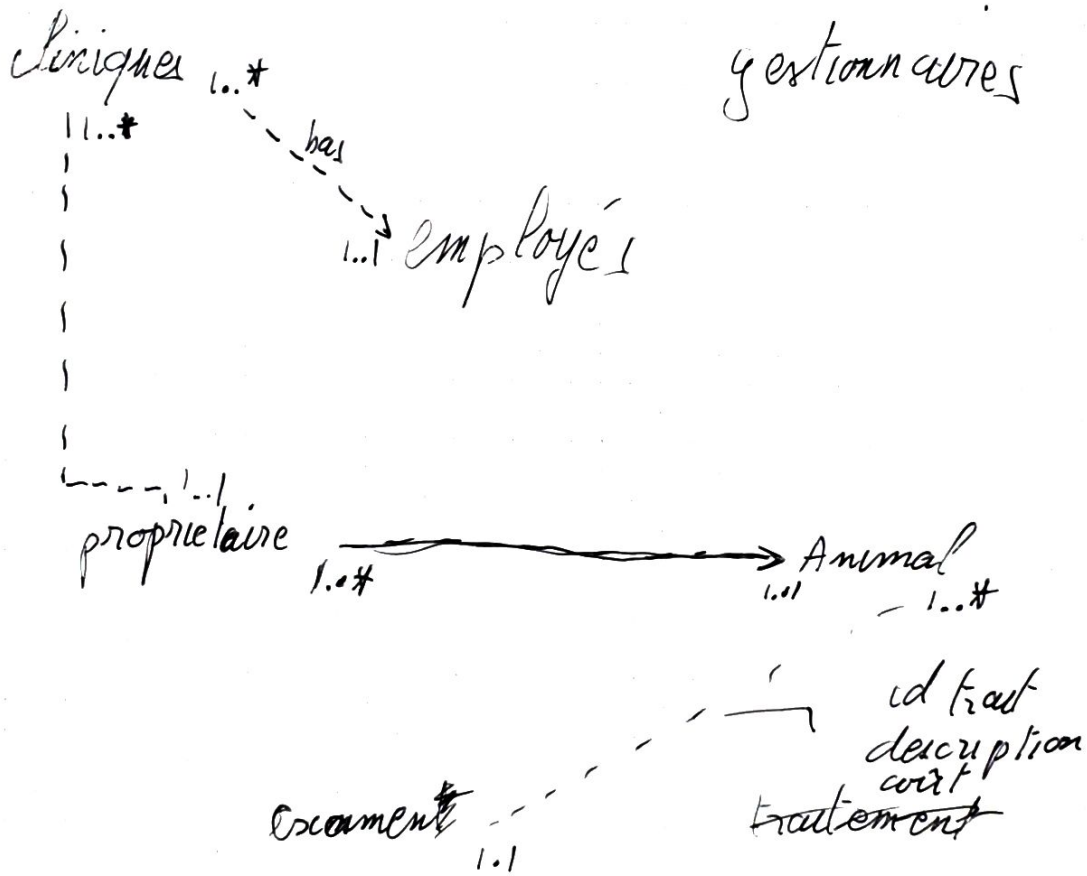 cliniques
gestionnaires
1..*
1..*
has
1..1
employés
1..1
proprietaire
Animal
1..*
1..1
1..*
id trait
description
coût
exament
traitement
1.1